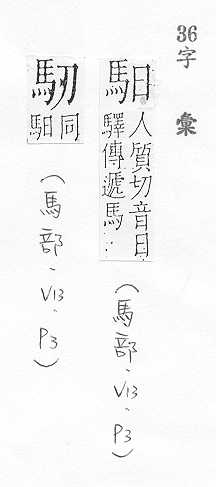 36
字彙
馹
人質切音日
驛傳遞馬..
(馬部、V13、P3)
同
馹
(馬部、V13、P3)